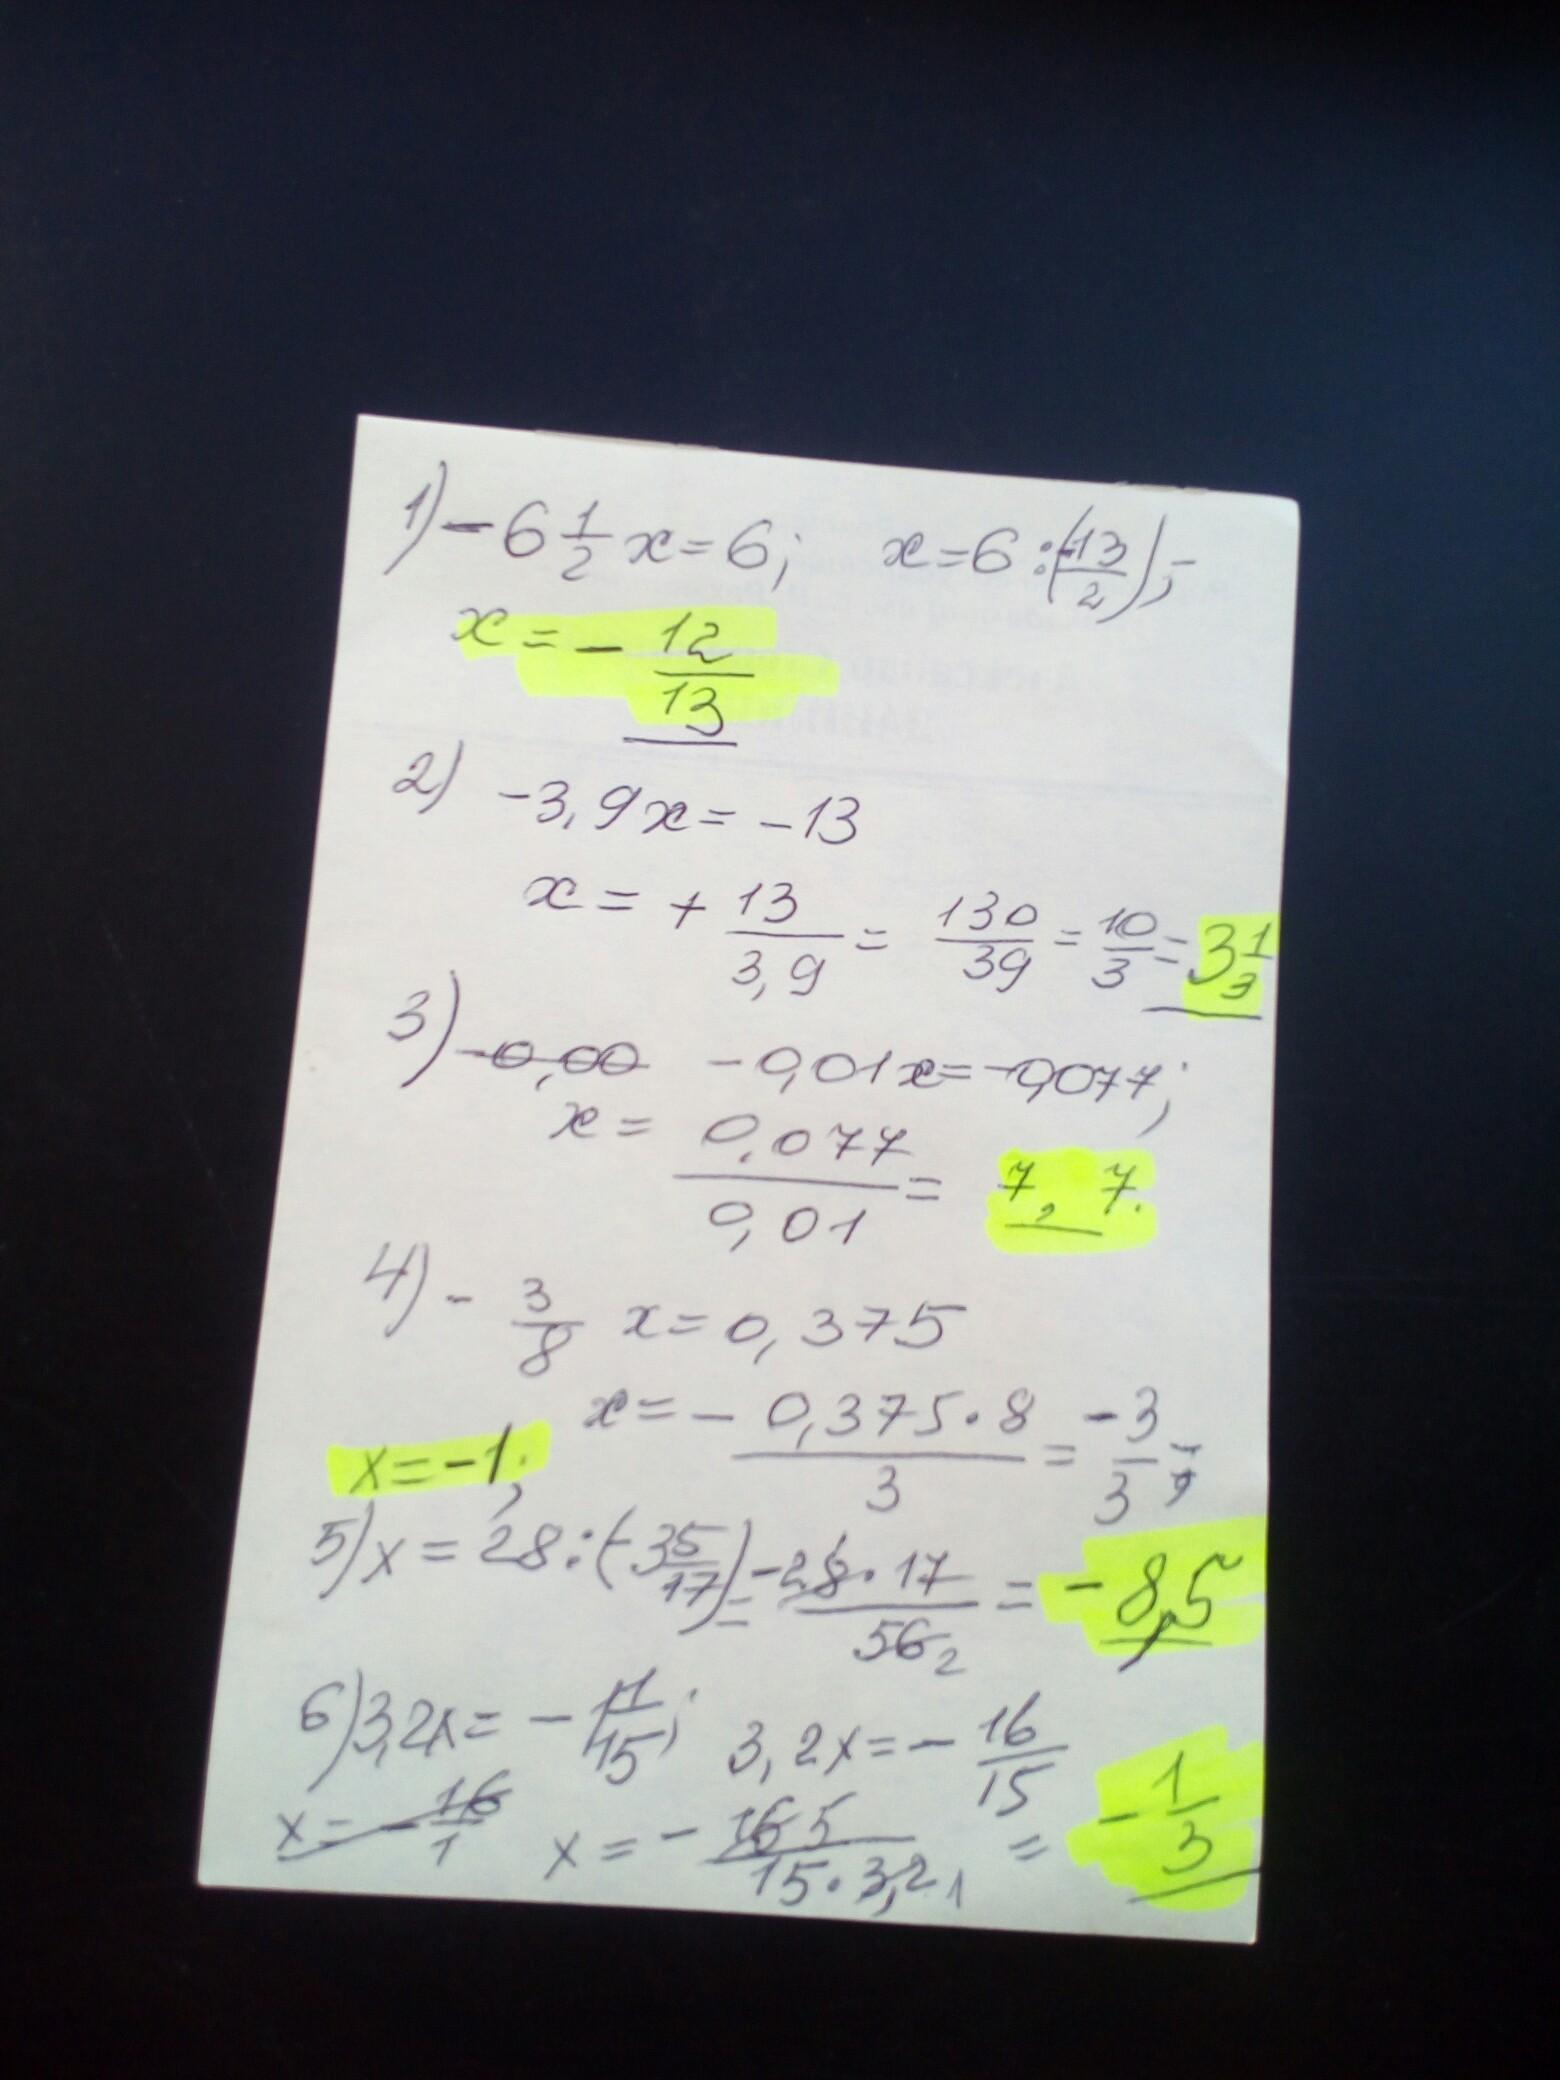 1) -6 1/2 x = 6; x = 6 : (-13/2);
x = - 12/13
2) -3,9x = -13
x = + 13/3,9 = 130/39 = 10/3 = 3 1/3
3) -0,00 -0,01x = -0,077;
x = 0,077/0,01 = 7,7.
4) - 3/8 x = 0,375
x = - 0,375·8/3 = -3/3;
x = -1;
5) x = 28 : (-3 5/17) = -28·17/56 2 = -8,5
6) 3,2x = -1 1/15; 3,2x = - 16/15
x = - 16/1 x = - 16 5/15·3,2 1 = - 1/3